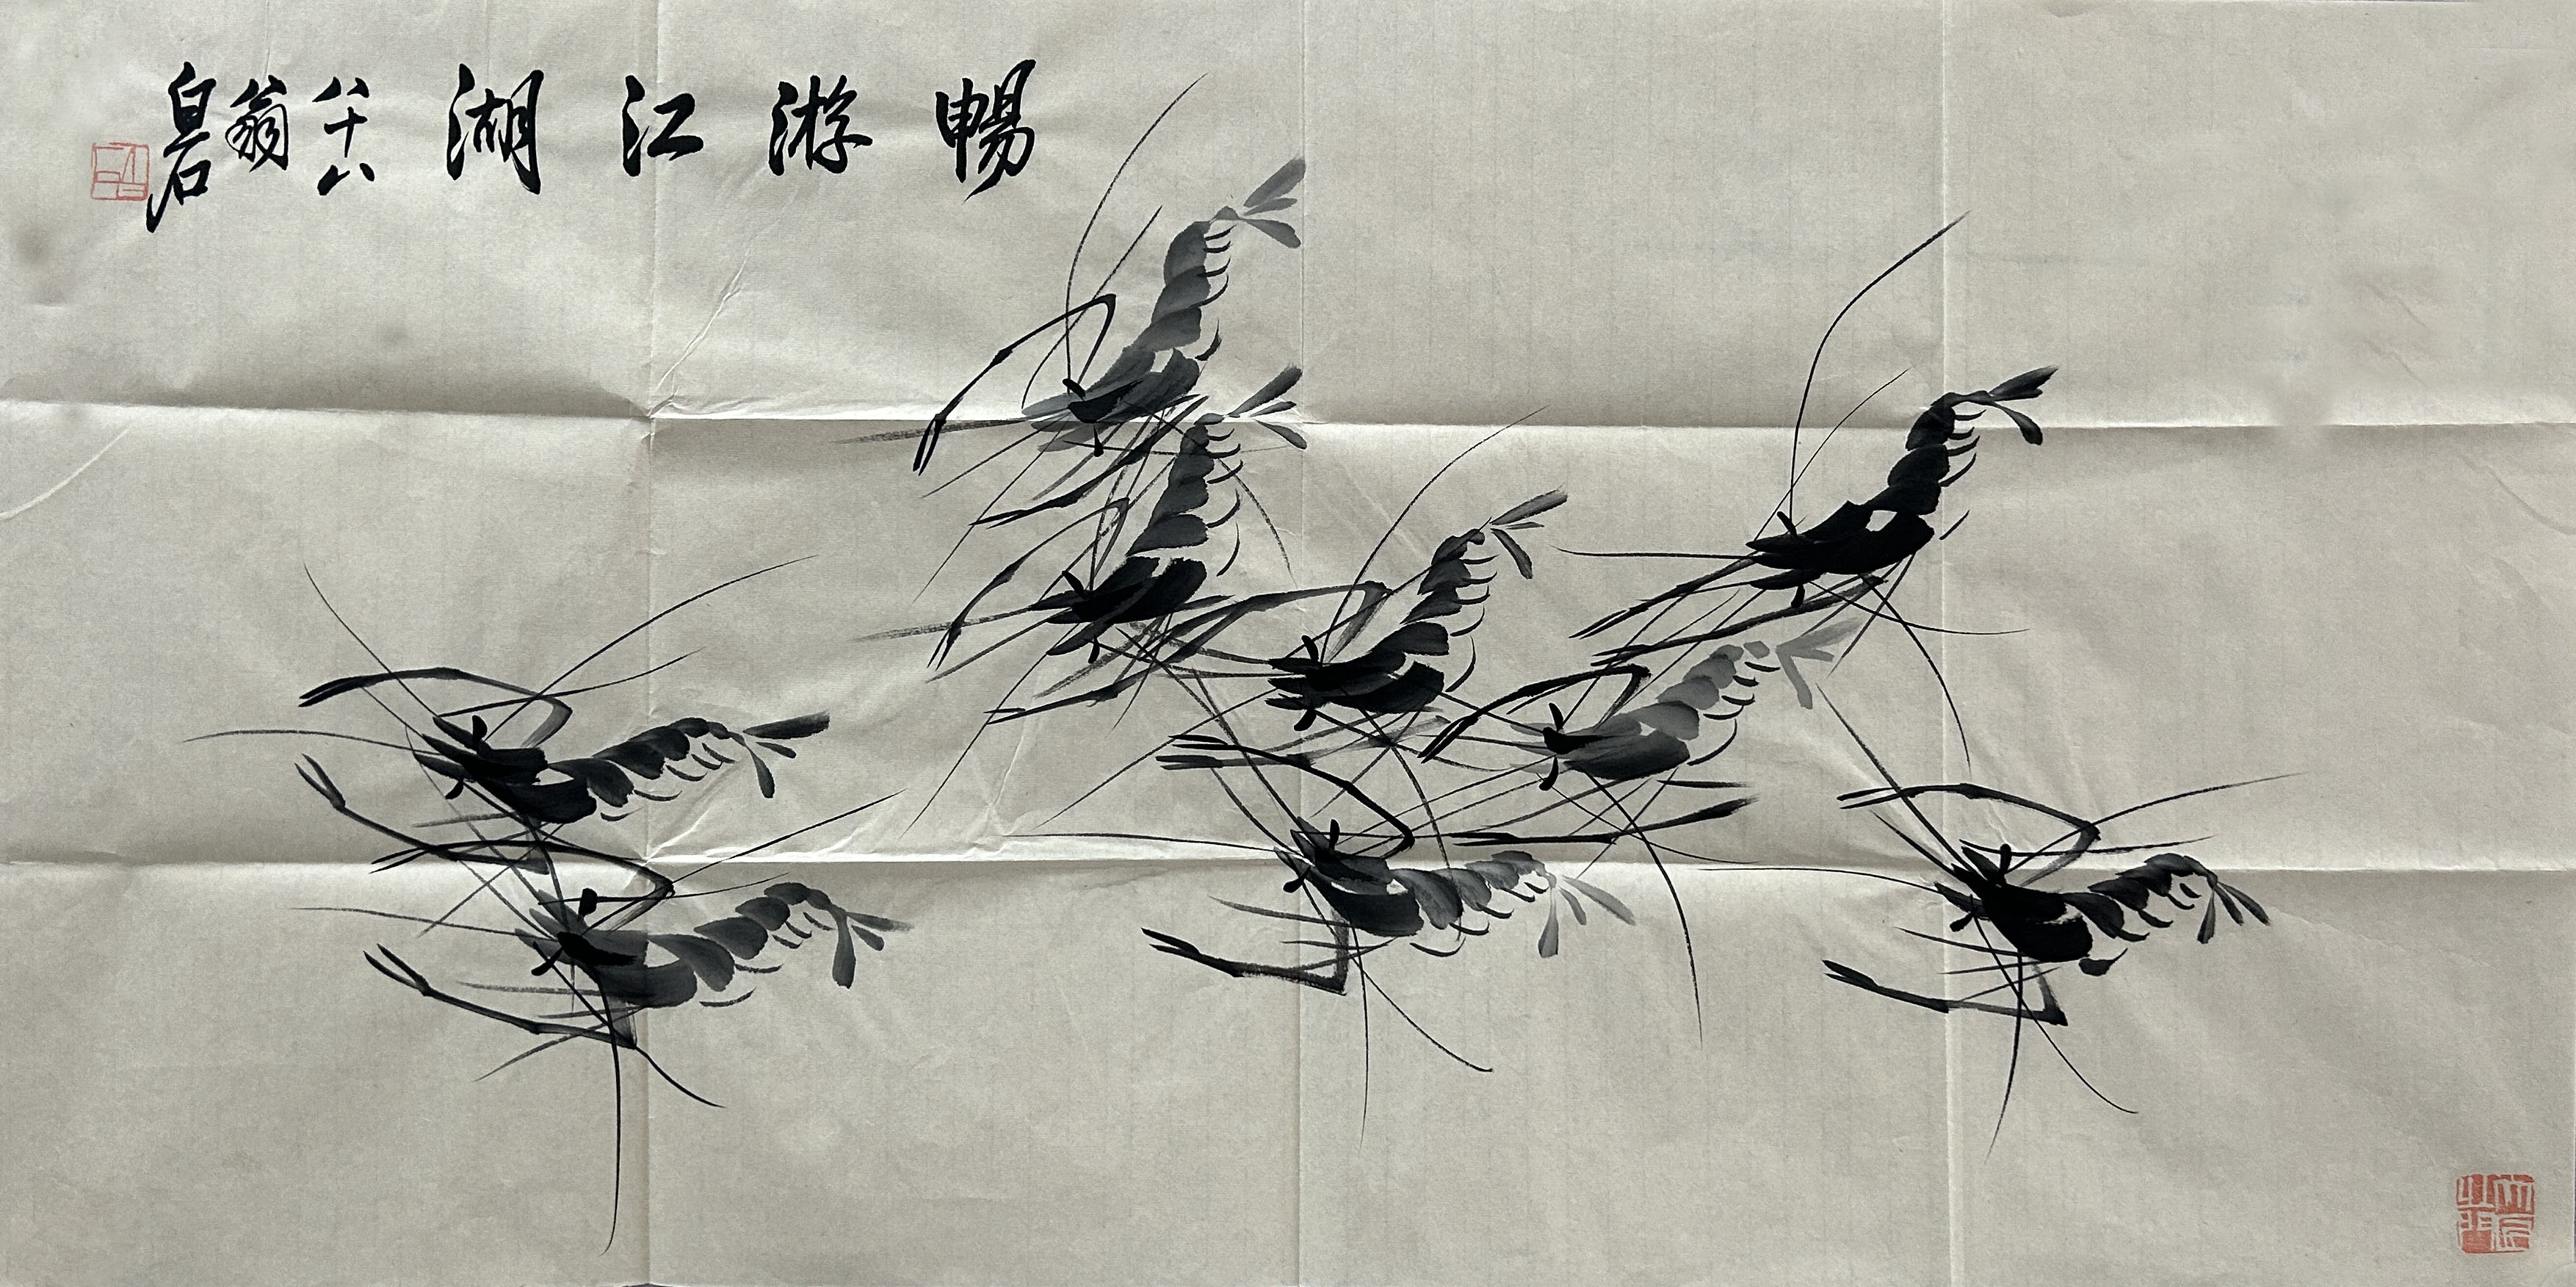 暢游江湖
八十八
翁
白石